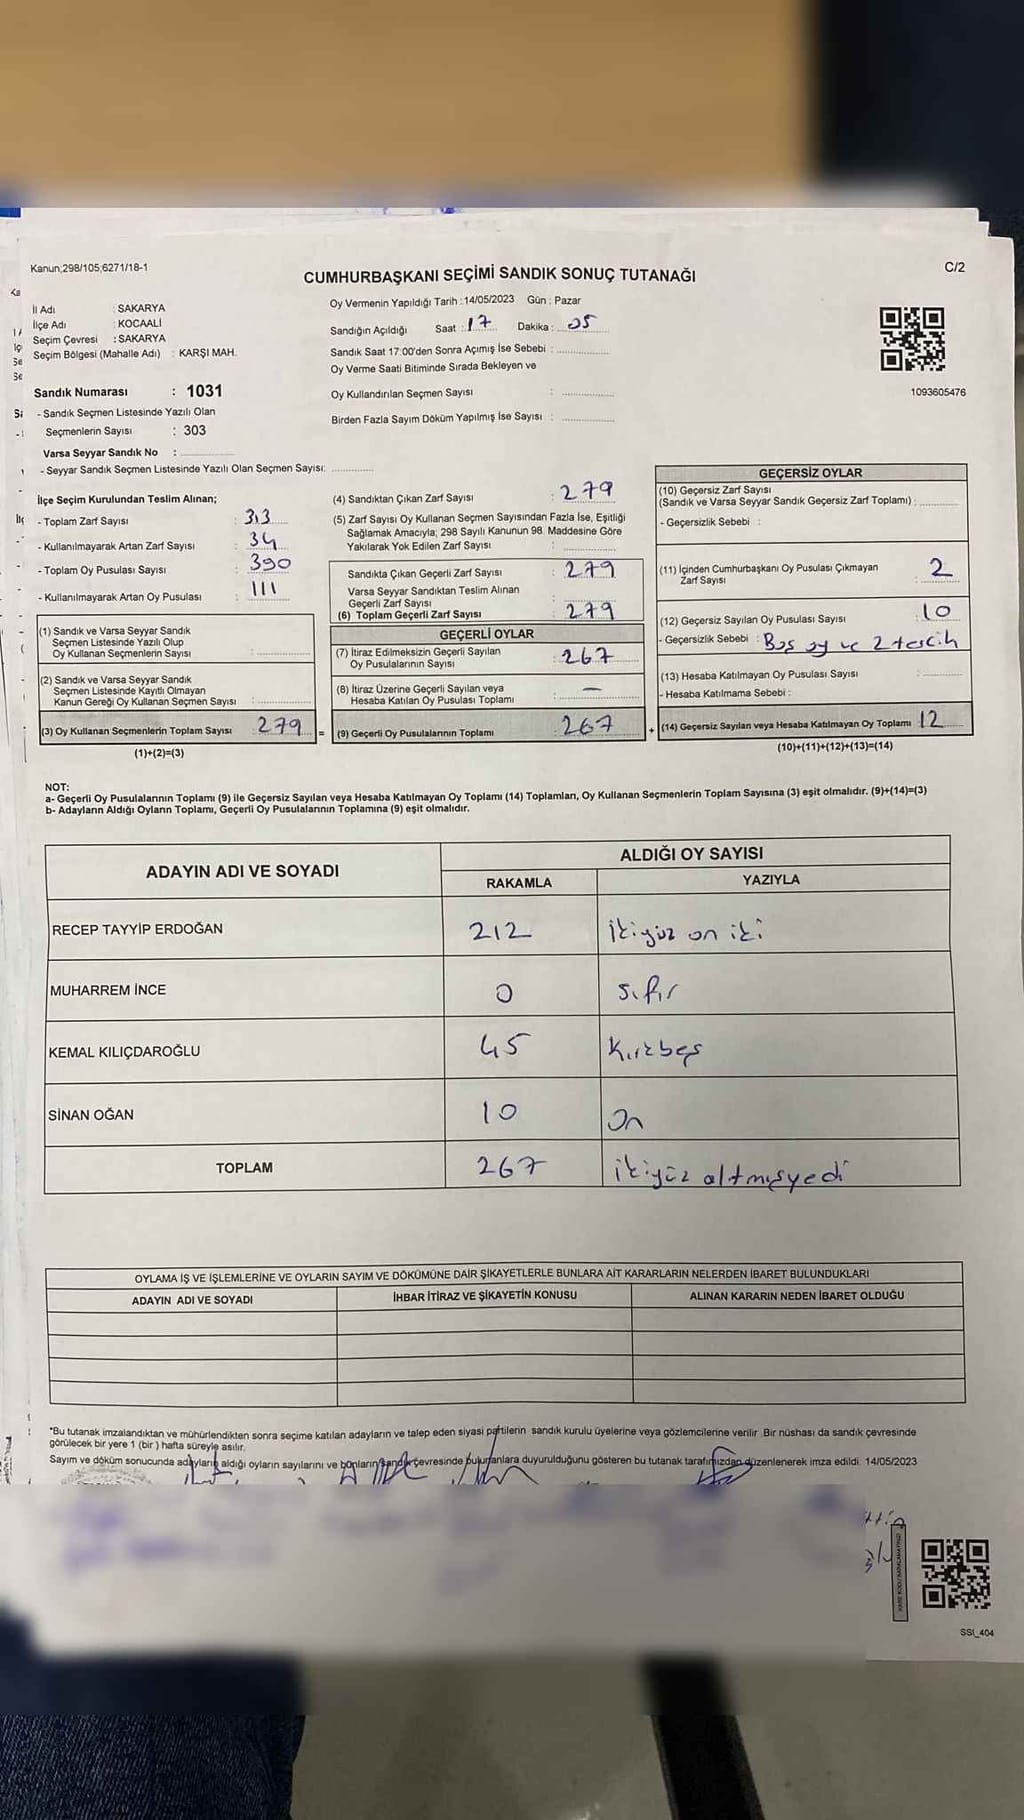 Kanun;298/105,6271/18-1
C/2
CUMHURBAŞKANI SEÇİMİ SANDIK SONUÇ TUTANAĞI
İl Adı : SAKARYA
İlçe Adı : KOCAALİ
Seçim Çevresi : SAKARYA
Seçim Bölgesi (Mahalle Adı) : KARŞI MAH.
Oy Vermenin Yapıldığı Tarih : 14/05/2023 Gün : Pazar
Sandığın Açıldığı Saat : 17 Dakika : 05
Sandık Saat 17:00'den Sonra Açımış İse Sebebi :
Oy Verme Saati Bitiminde Sırada Bekleyen ve
Oy Kullandırılan Seçmen Sayısı :
Birden Fazla Sayım Döküm Yapılmış İse Sayısı :
1093605476
Sandık Numarası : 1031
- Sandık Seçmen Listesinde Yazılı Olan
Seçmenlerin Sayısı : 303
Varsa Seyyar Sandık No :
- Seyyar Sandık Seçmen Listesinde Yazılı Olan Seçmen Sayısı:
İlçe Seçim Kurulundan Teslim Alınan;
- Toplam Zarf Sayısı : 313
- Kullanılmayarak Artan Zarf Sayısı : 34
- Toplam Oy Pusulası Sayısı : 390
- Kullanılmayarak Artan Oy Pusulası : 111
(1) Sandık ve Varsa Seyyar Sandık
Seçmen Listesinde Yazılı Olup
Oy Kullanan Seçmenlerin Sayısı :
(2) Sandık ve Varsa Seyyar Sandık
Seçmen Listesinde Kayıtlı Olmayan
Kanun Gereği Oy Kullanan Seçmen Sayısı :
(3) Oy Kullanan Seçmenlerin Toplam Sayısı : 279
(1)+(2)=(3)
(4) Sandıktan Çıkan Zarf Sayısı : 279
(5) Zarf Sayısı Oy Kullanan Seçmen Sayısından Fazla İse, Eşitliği
Sağlamak Amacıyla; 298 Sayılı Kanunun 98. Maddesine Göre
Yakılarak Yok Edilen Zarf Sayısı :
Sandıkta Çıkan Geçerli Zarf Sayısı : 279
Varsa Seyyar Sandıktan Teslim Alınan
Geçerli Zarf Sayısı :
(6) Toplam Geçerli Zarf Sayısı : 279
GEÇERLİ OYLAR
(7) İtiraz Edilmeksizin Geçerli Sayılan
Oy Pusulalarının Sayısı : 267
(8) İtiraz Üzerine Geçerli Sayılan veya
Hesaba Katılan Oy Pusulası Toplamı : —
= (9) Geçerli Oy Pusulalarının Toplamı : 267
GEÇERSİZ OYLAR
(10) Geçersiz Zarf Sayısı
(Sandık ve Varsa Seyyar Sandık Geçersiz Zarf Toplamı) :
- Geçersizlik Sebebi :
(11) İçinden Cumhurbaşkanı Oy Pusulası Çıkmayan
Zarf Sayısı : 2
(12) Geçersiz Sayılan Oy Pusulası Sayısı : 10
- Geçersizlik Sebebi : Boş oy ve 2 tercih
(13) Hesaba Katılmayan Oy Pusulası Sayısı :
- Hesaba Katılmama Sebebi :
+ (14) Geçersiz Sayılan veya Hesaba Katılmayan Oy Toplamı 12
(10)+(11)+(12)+(13)=(14)
NOT:
a- Geçerli Oy Pusulalarının Toplamı (9) ile Geçersiz Sayılan veya Hesaba Katılmayan Oy Toplamı (14) Toplamları, Oy Kullanan Seçmenlerin Toplam Sayısına (3) eşit olmalıdır. (9)+(14)=(3)
b- Adayların Aldığı Oyların Toplamı, Geçerli Oy Pusulalarının Toplamına (9) eşit olmalıdır.
ADAYIN ADI VE SOYADI
ALDIĞI OY SAYISI
RAKAMLA YAZIYLA
RECEP TAYYİP ERDOĞAN 212 İkiyüz on iki
MUHARREM İNCE 0 sıfır
KEMAL KILIÇDAROĞLU 45 Kırkbeş
SİNAN OĞAN 10 On
TOPLAM 267 ikiyüz altmışyedi
OYLAMA İŞ VE İŞLEMLERİNE VE OYLARIN SAYIM VE DÖKÜMÜNE DAİR ŞİKAYETLERLE BUNLARA AİT KARARLARIN NELERDEN İBARET BULUNDUKLARI
ADAYIN ADI VE SOYADI İHBAR İTİRAZ VE ŞİKAYETİN KONUSU ALINAN KARARIN NEDEN İBARET OLDUĞU
*Bu tutanak imzalandıktan ve mühürlendikten sonra seçime katılan adayların ve talep eden siyasi partilerin sandık kurulu üyelerine veya gözlemcilerine verilir. Bir nüshası da sandık çevresinde
görülecek bir yere 1 (bir) hafta süreyle asılır.
Sayım ve döküm sonucunda adayların aldığı oyların sayılarını ve bunların sandık çevresinde bulunanlara duyurulduğunu gösteren bu tutanak tarafımızdan düzenlenerek imza edildi. 14/05/2023
SSI_404